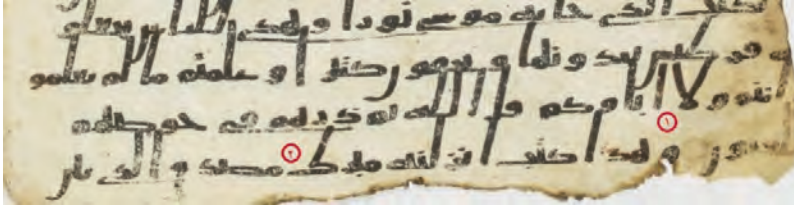 الكتب الذي جا به موسى نورا وهدى للناس تجعلو
نه قرطيس تبدونها وتخفون كثيرا وعلمتم ما لم تعلمو
انتم ولا اباوكم قل الله ثم ذرهم في خوضهم
١
يلعبون وهذا كتب انزلنه مبرك مصدق الذي بين
٢